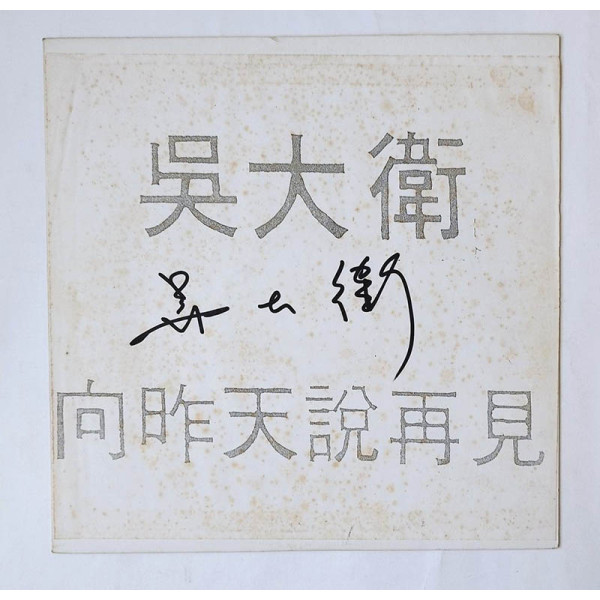 吳大衛
吳大衛
向昨天說再見